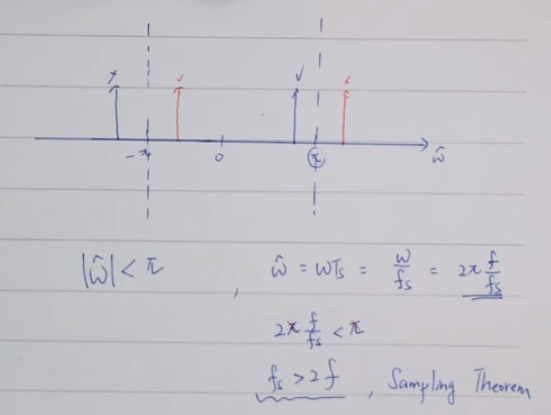 x ✓ ✓ x
-π 0 π ω̂
|ω̂| < π , ω̂ = ωTs = ω/fs = 2π f/fs
2π f/fs < π
fs > 2f , Sampling Theorem